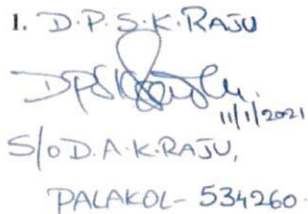 1. D.P.S.K.RAJU
DPSKRaju.
11/1/2021
S/o D.A.K.RAJU,
PALAKOL- 534260.